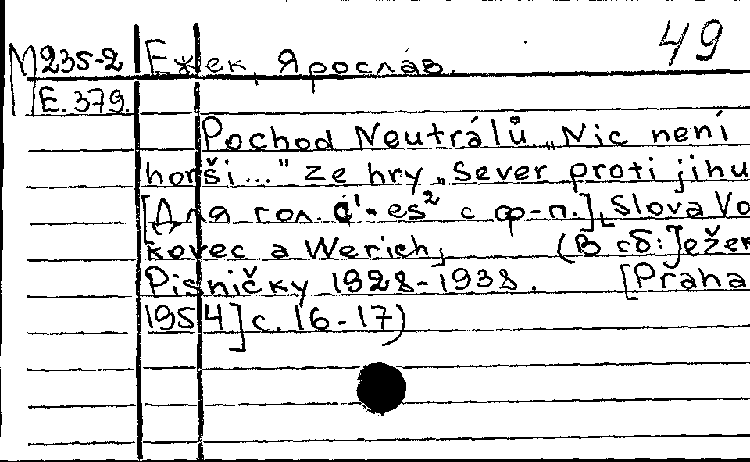 49
М235-2 Ежек, Ярослав.
Е.379.
Pochod Neutrálů „Nic není
horši..." ze hry „Sever proti jihu
[Для гол. c¹-es² с ф-п.], Slova Vo
kovec a Werich, (В сб: Ježek
Pisničky 1928-1938. [Praha
1954] с. 16-17)